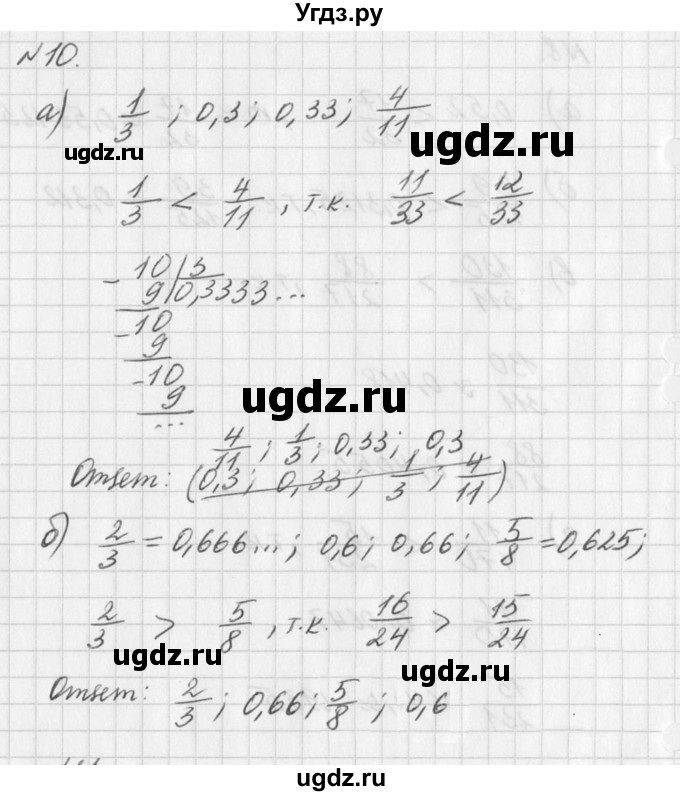 Угдз.ру
№10.
а) 1/3 ; 0,3; 0,33; 4/11
ugdz.ru
ugdz.ru
1/3 < 4/11 , т.к. 11/33 < 12/33
- 10 | 3
9 0,3333...
- 10
9
- 10
9
...
ugdz.ru
4/11 ; 1/3 ; 0,33; 0,3
Ответ: (0,3; 0,33; 1/3 ; 4/11)
б) 2/3 = 0,666...; 0,6; 0,66; 5/8 = 0,625;
2/3 > 5/8 , т.к. 16/24 > 15/24
ugdz.ru
ugdz.ru
Ответ: 2/3 ; 0,66; 5/8 ; 0,6
ugdz.ru